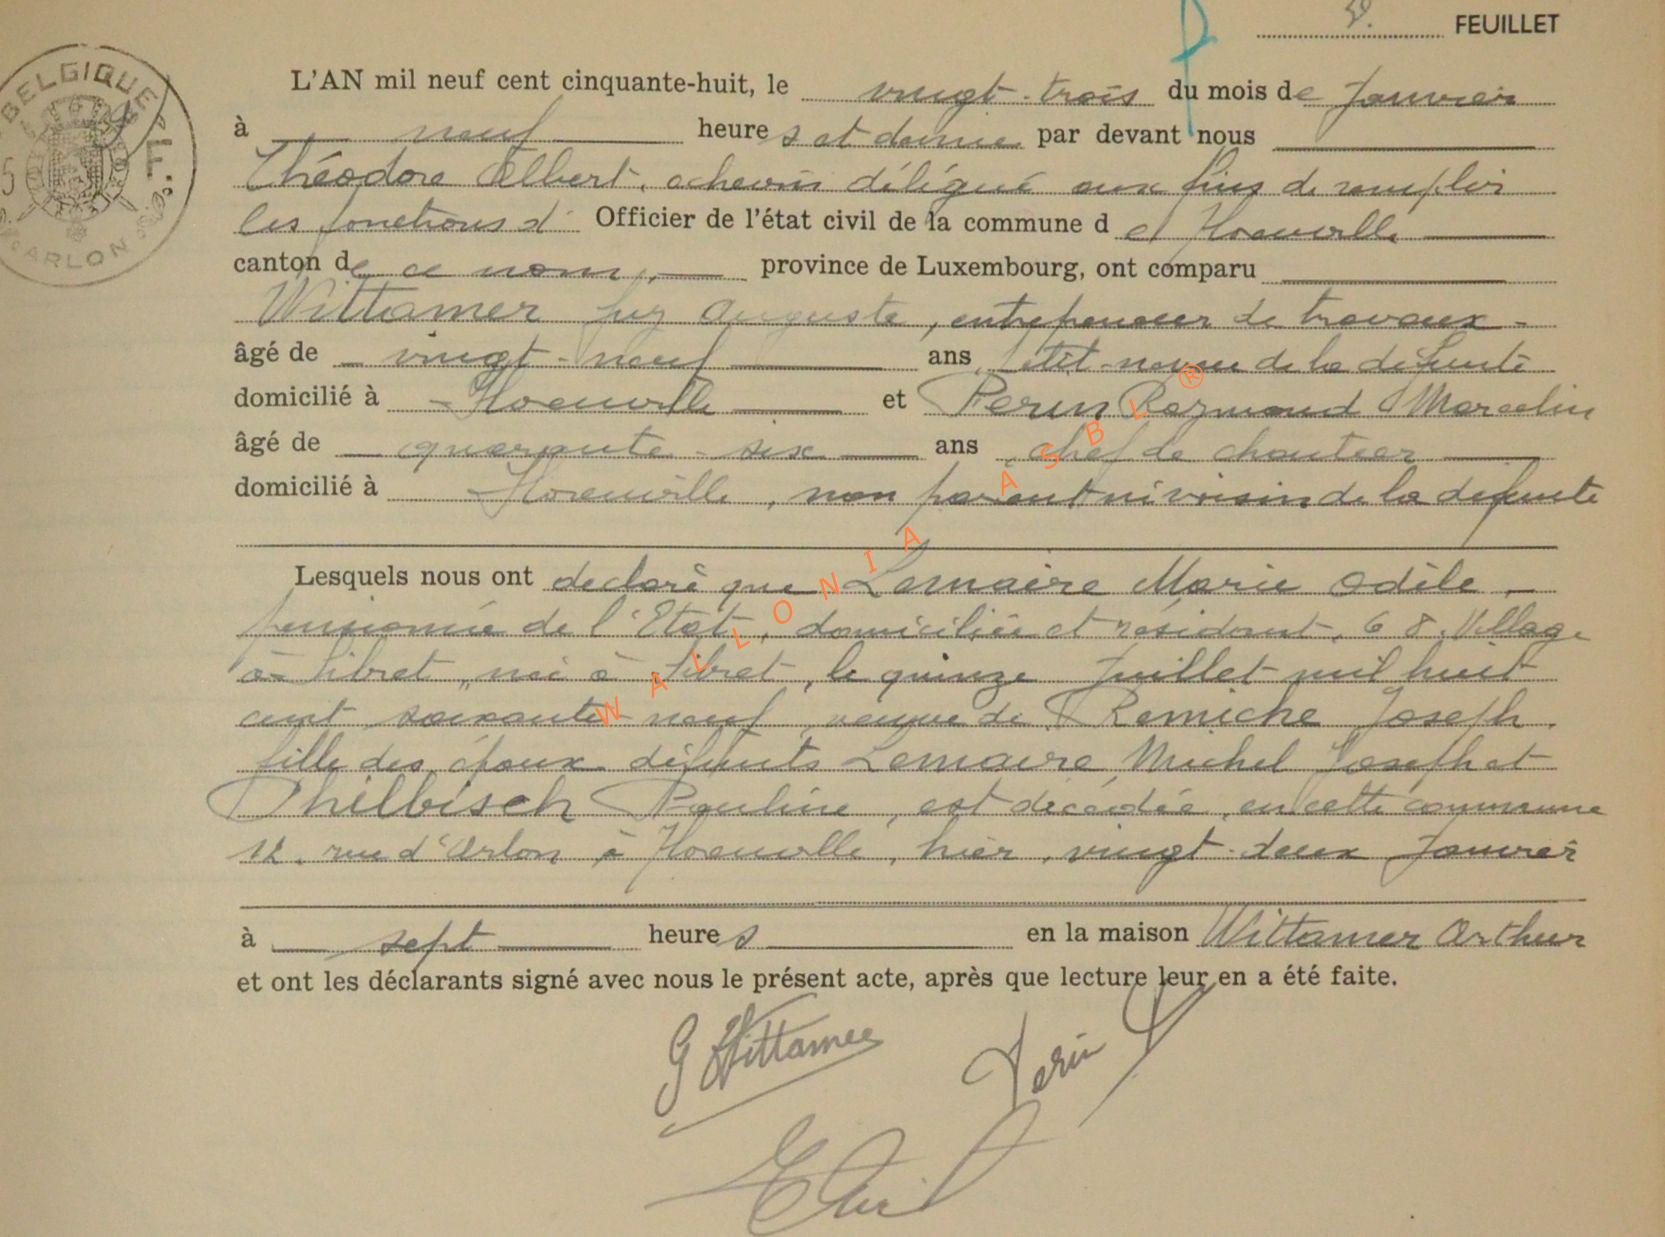 FEUILLET
BELGIQUE
F.
5
ARLON
L'AN mil neuf cent cinquante-huit, le vingt-trois du mois de Janvier
à neuf heures et demie par devant nous
Théodore Albert, échevin délégué aux fins de remplir
les fonctions d' Officier de l'état civil de la commune de
canton de ce nom, province de Luxembourg, ont comparu
Wittamer Guy Auguste, entrepreneur de travaux
âgé de vingt-neuf ans petit-neveu de la défunte
domicilié à et Perin Raymond Marcelin
âgé de quarante-six ans, chef de chantier
domicilié à , non parent ni voisin de la défunte
Lesquels nous ont declaré que Lemaire Marie Odile
pensionnée de l'Etat, domiciliée et résidant, 68, Village
à Sibret, née à Sibret, le quinze Juillet mil huit
cent soixante-neuf, veuve de Remiche Joseph,
fille des époux défunts Lemaire Michel Joseph et
Philbisch Pauline, est décédée, en cette commune
12, rue d'Arlon à , hier, vingt-deux Janvier
à sept heures en la maison Wittamer Arthur
et ont les déclarants signé avec nous le présent acte, après que lecture leur en a été faite.
G Wittamer Perin
WALLONIA ASBL ®